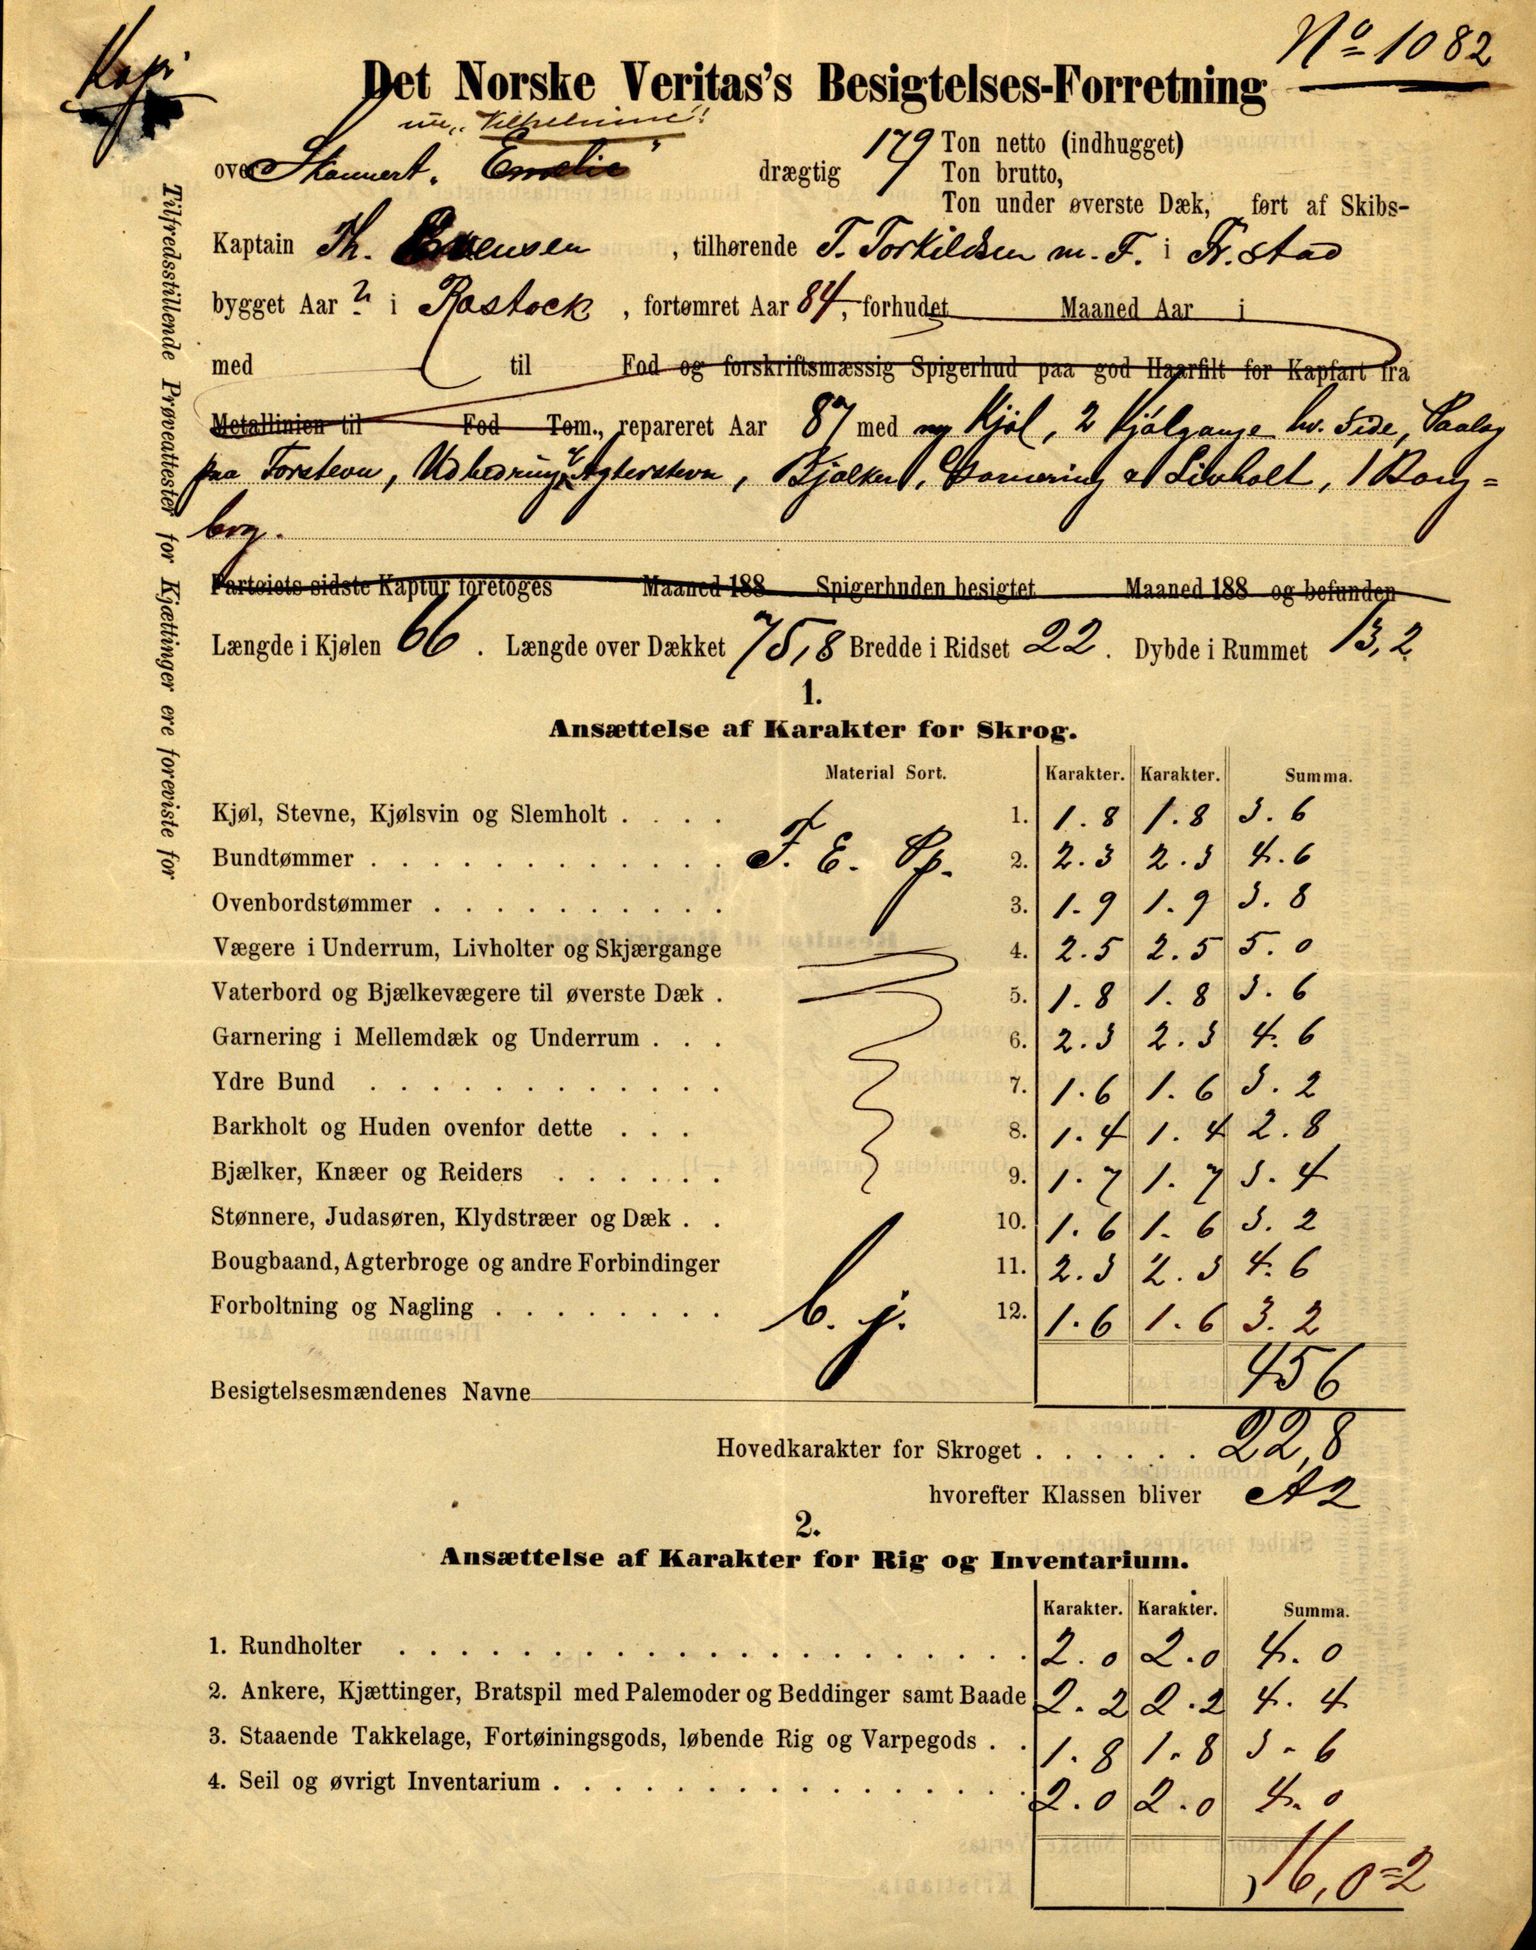 Kopi
No 1082
Det Norske Veritas's Besigtelses-Forretning
nu „Vilhelmine"
over Skonnert. Emelie" drægtig 179 Ton netto (indhugget)
Ton brutto,
Ton under øverste Dæk, ført af Skibs-
Kaptain Th. Evensen, tilhørende T. Torkildsen m. F. i Fr.stad
bygget Aar ? i Rostock, fortømret Aar 84, forhudet Maaned Aar i
med til Fod og forskriftsmæssig Spigerhud paa god Haarfilt for Kapfart fra
Metallinien til Fod Tom., repareret Aar 87 med ny Kjøl, 2 Kjølgange hv. Side, Paalag
paa Forstevn, Udbedring Agterstevn, Bjælker, Garnering & Livholt, 1 Boug=
bog.
Partoiets sidste Kaptur foretoges Maaned 188 Spigerhuden besigtet Maaned 188 og befunden
Længde i Kjølen 66. Længde over Dækket 75,8 Bredde i Ridset 22. Dybde i Rummet 13,2
1.
Ansættelse af Karakter for Skrog.
Material Sort. Karakter. Karakter. Summa.
Kjøl, Stevne, Kjølsvin og Slemholt .... 1. 1.8 1.8 3.6
Bundtømmer ............ F. E. Pp. 2. 2.3 2.3 4.6
Ovenbordstømmer .......... 3. 1.9 1.9 3.8
Vægere i Underrum, Livholter og Skjærgange 4. 2.5 2.5 5.0
Vaterbord og Bjælkevægere til øverste Dæk . 5. 1.8 1.8 3.6
Garnering i Mellemdæk og Underrum ... 6. 2.3 2.3 4.6
Ydre Bund ............. 7. 1.6 1.6 3.2
Barkholt og Huden ovenfor dette ... 8. 1.4 1.4 2.8
Bjælker, Knæer og Reiders ...... 9. 1.7 1.7 3.4
Stønnere, Judasøren, Klydstræer og Dæk .. 10. 1.6 1.6 3.2
Bougbaand, Agterbroge og andre Forbindinger 11. 2.3 2.3 4.6
Forboltning og Nagling ........ b. j. 12. 1.6 1.6 3.2
456
Besigtelsesmændenes Navne
Hovedkarakter for Skroget ...... 22,8
hvorefter Klassen bliver A2
2.
Ansættelse af Karakter for Rig og Inventarium.
Karakter. Karakter. Summa.
1. Rundholter .................... 2.0 2.0 4.0
2. Ankere, Kjættinger, Bratspil med Palemoder og Beddinger samt Baade 2.2 2.2 4.4
3. Staaende Takkelage, Fortøiningsgods, løbende Rig og Varpegods .. 1.8 1.8 3.6
4. Seil og øvrigt Inventarium ................ 2.0 2.0 4.0
16,0=2
Tilfredsstillende Prøveattester for Kjættinger ere foreviste for